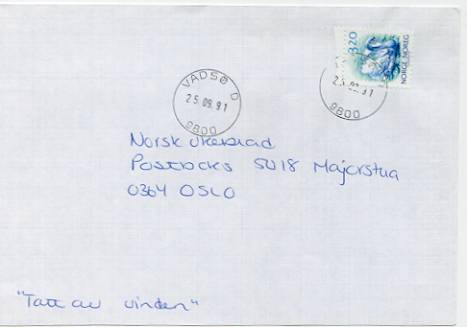 3,20
NORGE NOREG
VADSØ D
25.09.91
9800
9800
Norsk Ukeblad
Postboks 5018 Majorstua
0364 OSLO
"Tatt av vinden"